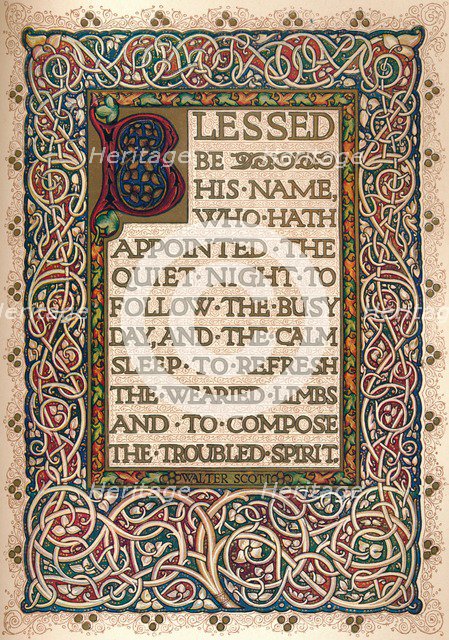 BLESSED
BE
HIS·NAME,
WHO·HATH
APPOINTED·THE
QUIET·NIGHT·TO
FOLLOW·THE·BUSY
DAY, AND·THE·CALM
SLEEP·TO·REFRESH
THE·WEARIED·LIMBS
AND·TO·COMPOSE
THE·TROUBLED·SPIRIT.
WALTER SCOTT
Heritage Heritage Heritage
Heritage Heritage Heritage
Heritage Heritage Heritage